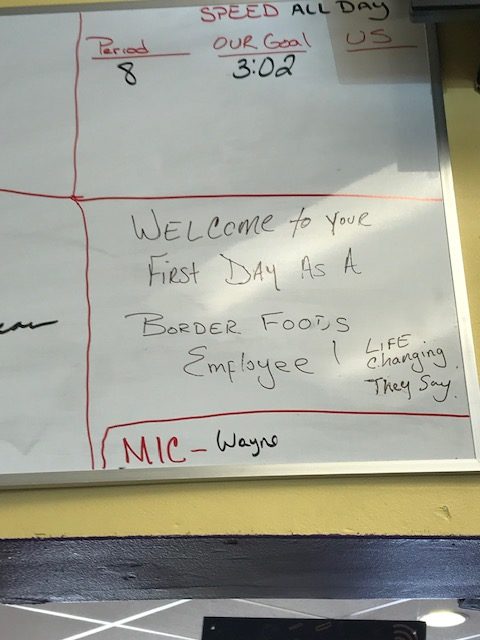 SPEED ALL DAY
Period OUR Goal US
8 3:02
WELCOME to YOUR
FIRST DAY AS A
BORDER FOODS
Employee!
LIFE
changing
They Say.
MIC - Wayne